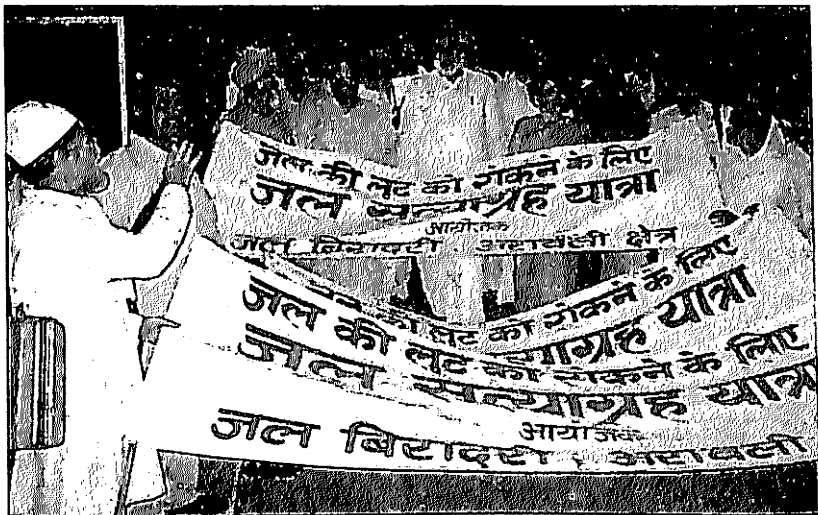 जल की लूट को रोकने के लिए
जल सत्याग्रह यात्रा
आयोजक
जल बिरादरी, अरावली क्षेत्र
की लूट को रोकने के लिए
सत्याग्रह यात्रा
जल की लूट को रोकने के लिए
जल सत्याग्रह यात्रा
आयोजक
जल बिरादरी, अरावली